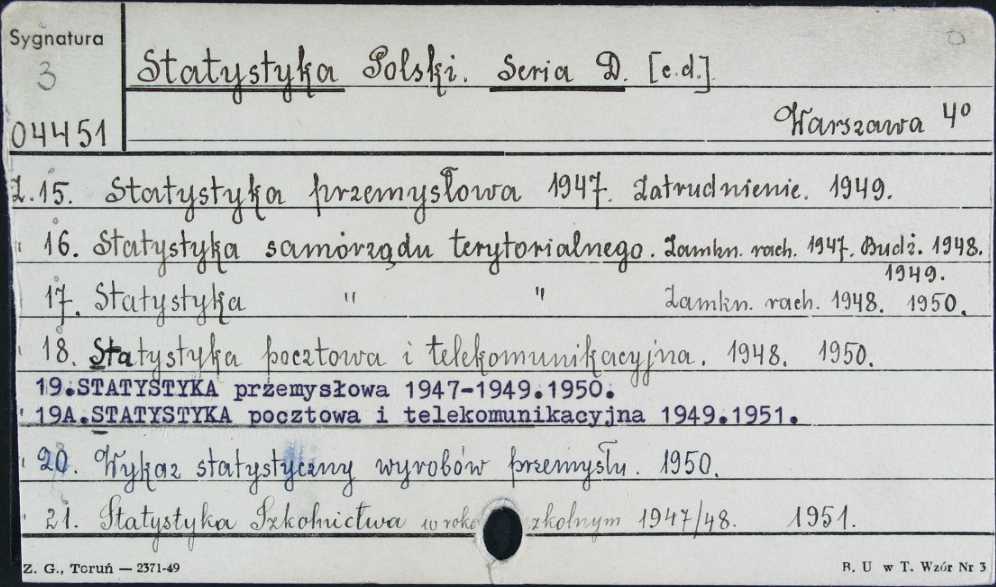 Sygnatura
3
04451
Statystyka Polski. Seria D. [c.d.].
Warszawa 4º
Z. 15. Statystyka przemysłowa 1947. Zatrudnienie. 1949.
" 16. Statystyka samorządu terytorialnego. Zamkn. rach. 1947. Budż. 1948.
1949.
17. Statystyka " " Zamkn. rach. 1948. 1950.
" 18. Statystyka pocztowa i telekomunikacyjna. 1948. 1950.
19.STATYSTYKA przemysłowa 1947-1949.1950.
" 19A.STATYSTYKA pocztowa i telekomunikacyjna 1949.1951.
" 20. Wykaz statystyczny wyrobów przemysłu. 1950.
" 21. Statystyka Szkolnictwa w roku szkolnym 1947/48. 1951.
Z. G., Toruń — 2371-49
B. U w T. Wzór Nr 3